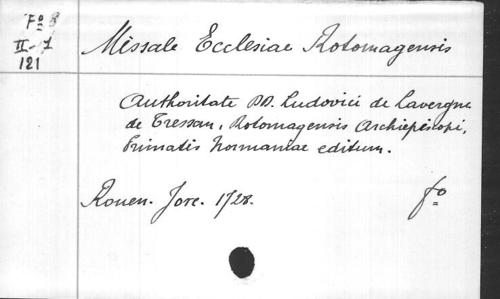 Fº B
II-1
121
Missale Ecclesiae Rotomagensis
Authoritate DD. Ludovici de Lavergne
de Tressan, Rotomagensis Archiepiscopi,
Primatis Normaniae editum.
Rouen. Jore. 1728. fº